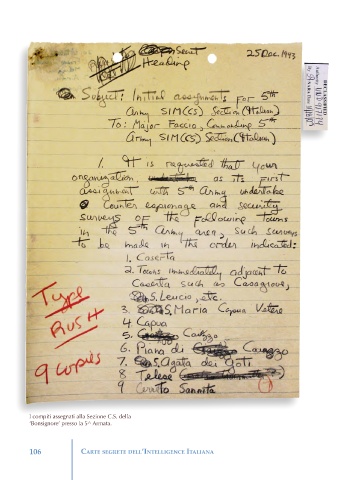 Secret
Heading
25 Dec. 1943
DECLASSIFIED
Subject: Initial assignments for 5th
Army SIM(CS) Section (Italian)
To: Major Faccio, Commanding 5th
Army SIM(CS) Section (Italian)
1. It is requested that your
organization, as its first
assignment with 5th Army undertake
counter espionage and security
surveys of the following towns
in the 5th Army area, such surveys
to be made in the order indicated:
1. Caserta
2. Towns immediately adjacent to
Caserta such as Casagiove,
S. Leucio, etc.
3. S. Maria Capua Vetere
4. Capua
5. Caiazzo
6. Piana di Caiazzo
7. S. Agata dei Goti
8 Telese
9 Cerreto Sannita
Type
RUSH
9 copies
I compiti assegnati alla Sezione C.S. della
'Bonsignore' presso la 5^ Armata.
106 CARTE SEGRETE DELL'INTELLIGENCE ITALIANA